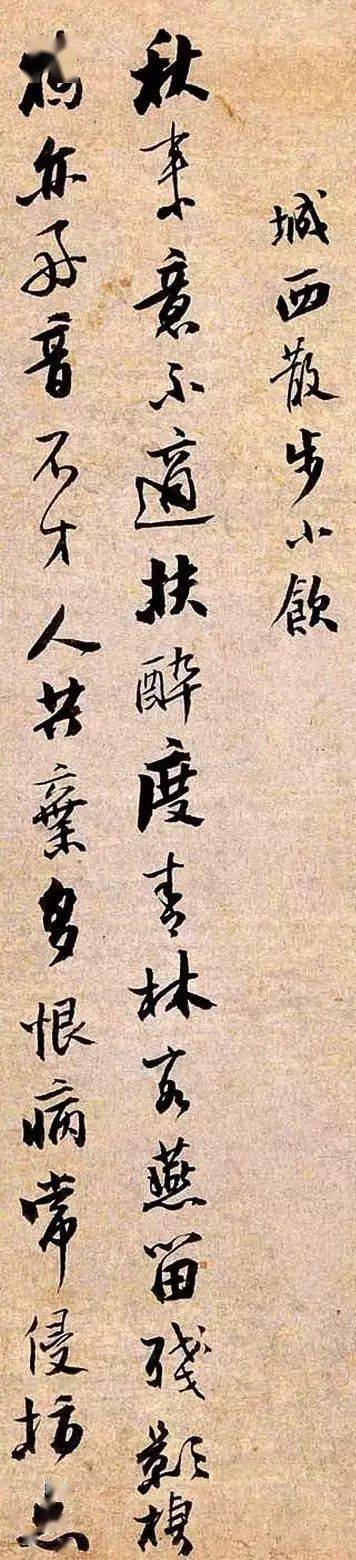 城西散步小飲
秋來意不適扶醉度青林客燕留殘影
亦好音不才人共棄多恨病常侵